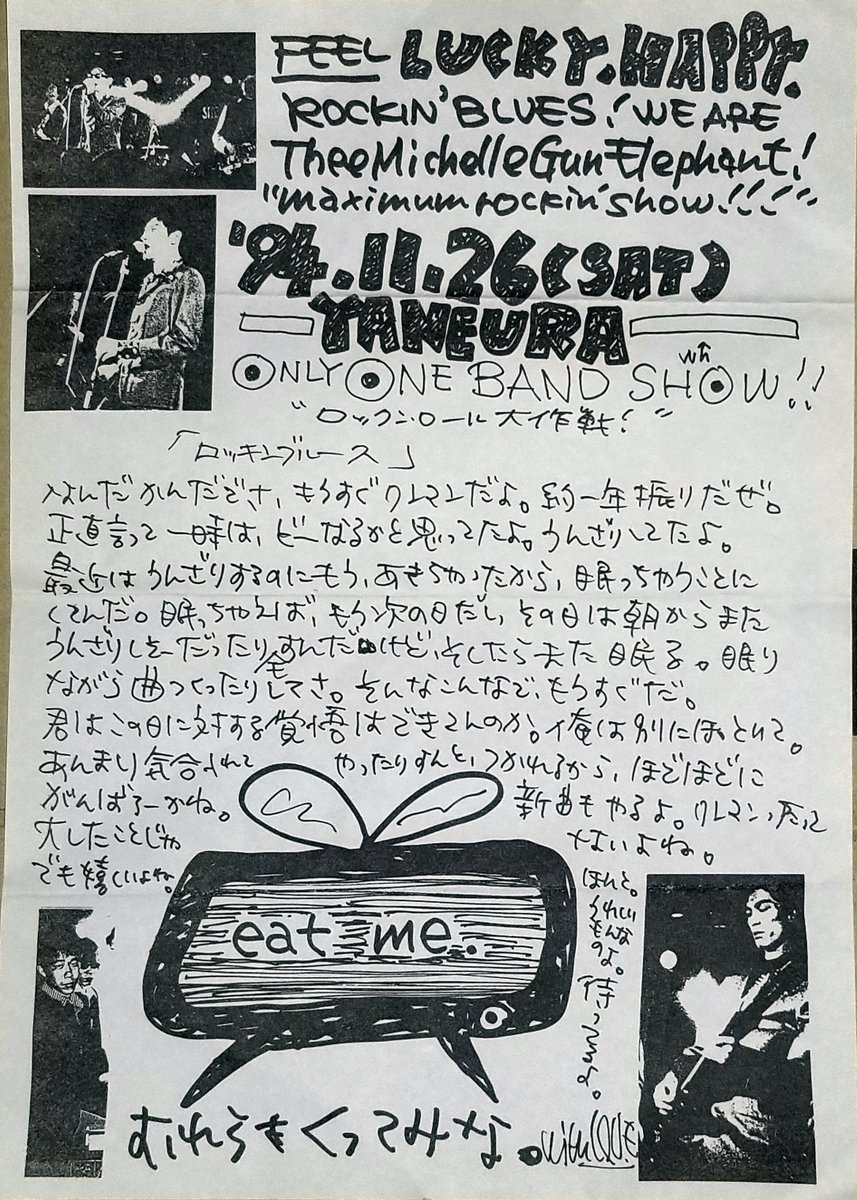 FEEL LUCKY. HAPPY.
ROCKIN' BLUES! WE ARE
Thee Michelle Gun Elephant!
"maximum rockin' show!!!"
'94.11.26(SAT)
YANEURA
ONLY ONE BAND SHOW!!
"ロックン・ロール大作戦!"
「ロッキンブルース」
なんだかんだでさ、もうすぐワンマンだよ。約一年振りだぜ。
正直言って一時は、どーなるかと思ってたよ。うんざりしてたよ。
最近はうんざりするのにもう、あきちゃったから、眠っちゃうことに
してんだ。眠っちゃえば、もう次の日だし、その日は朝からまた
うんざりしそーだったりすんだけど、そしたらまた眠る。眠り
ながら曲つくったりもしてさ。そんなこんなで、もうすぐだ。
君はこの日に対する覚悟はできてんのか。俺は別にほっといて。
あんまり気合入れて やったりすんと、つかれるから、ほどほどに
がんばろーかね。 新曲もやるよ。ワンマンったって
大したことじゃ ないよね。
でも嬉しいよね。
ほんと。
うれしい
もんな
のよ。
待ってるよ。
eat me.
おれらをくってみな。
with LOVE